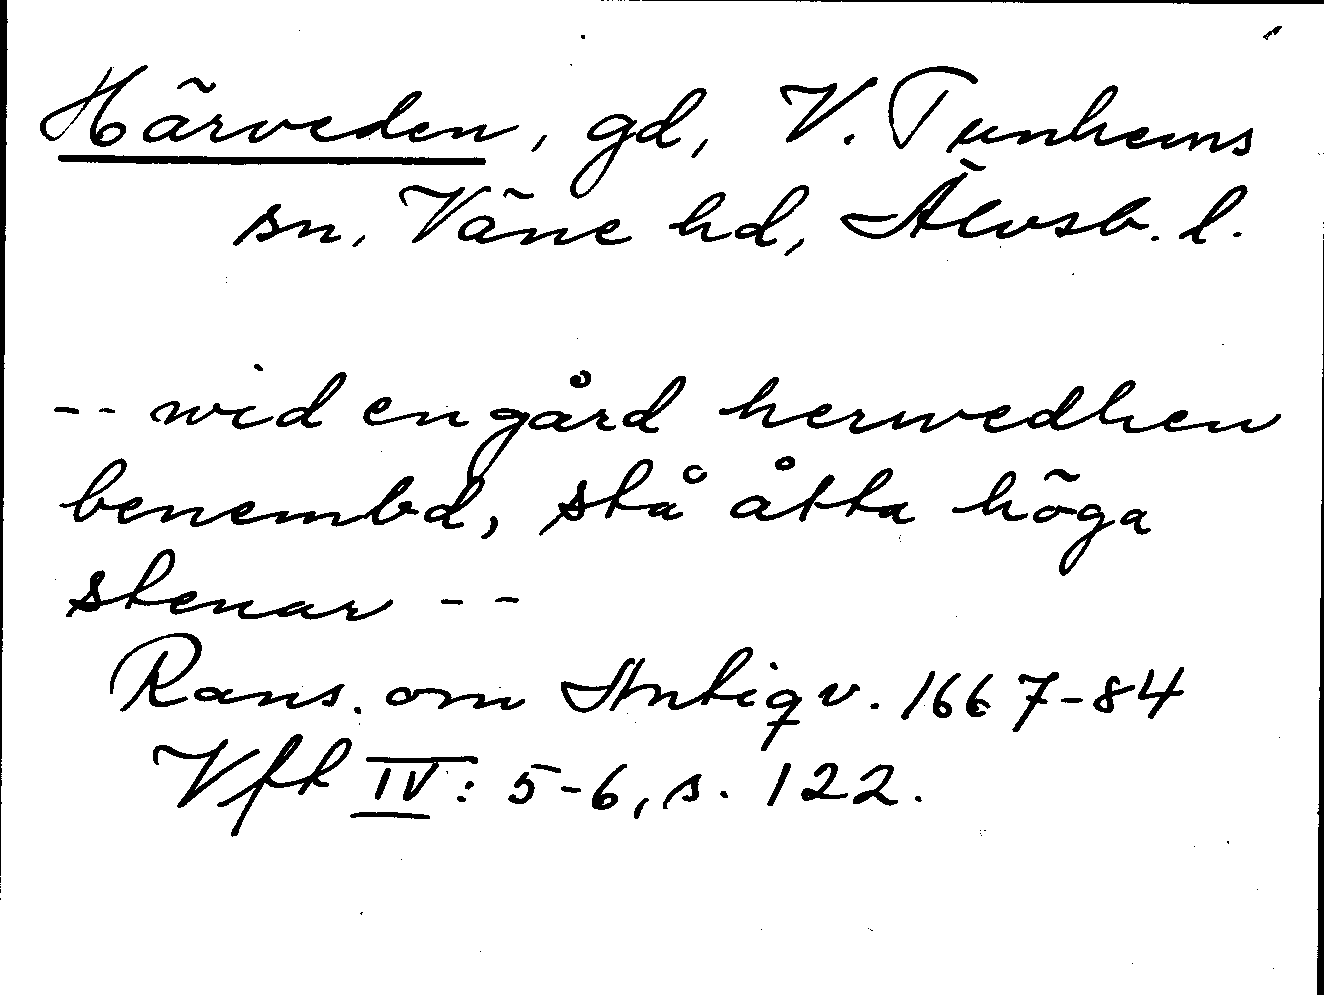 Härveden, gd, V. Tunhems
sn, Väne hd, Älvsb. l.
-- wid en gård herwedhen
benembd, stå åtta höga
stenar --
Rans. om Antiqv. 1667-84
Vft IV: 5-6, s. 122.